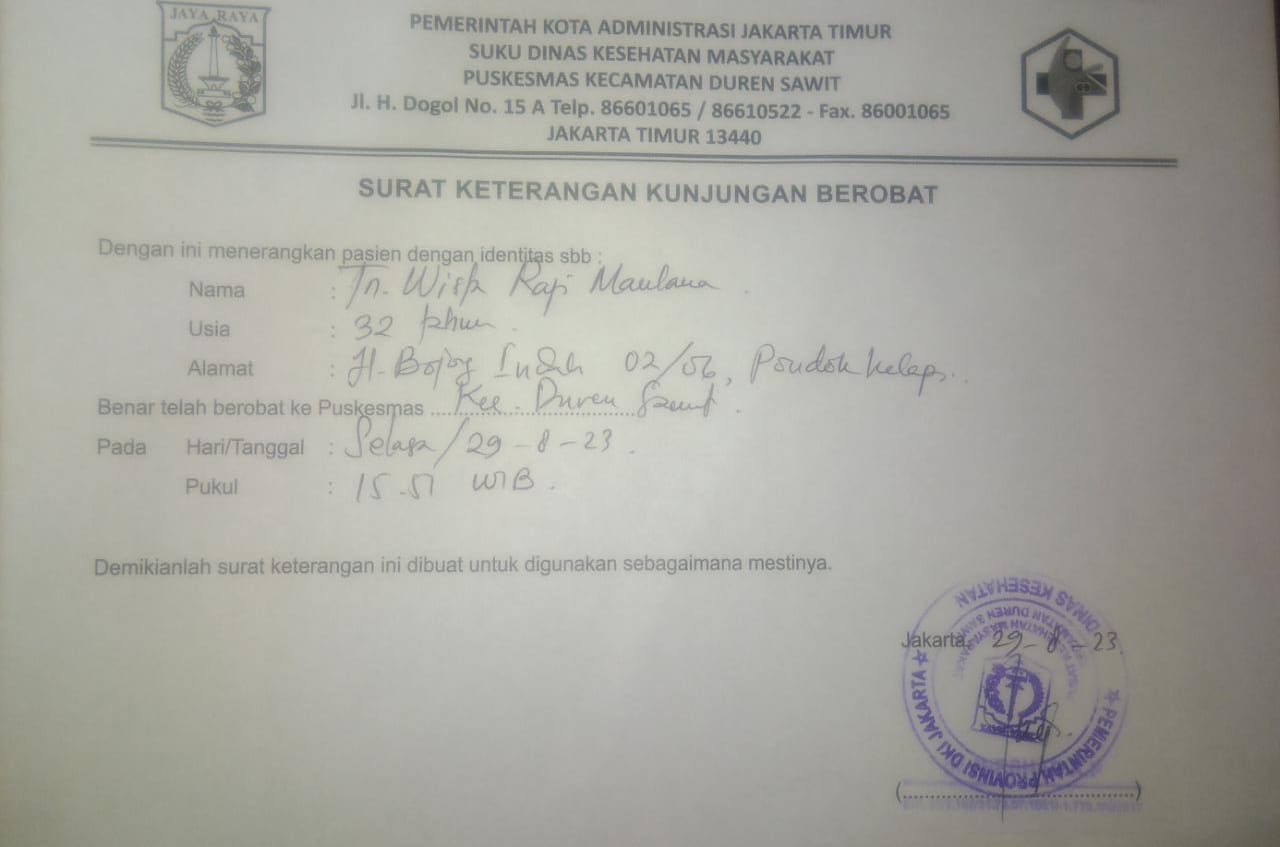 JAYA RAYA
PEMERINTAH KOTA ADMINISTRASI JAKARTA TIMUR
SUKU DINAS KESEHATAN MASYARAKAT
PUSKESMAS KECAMATAN DUREN SAWIT
Jl. H. Dogol No. 15 A Telp. 86601065 / 86610522 - Fax. 86001065
JAKARTA TIMUR 13440
SURAT KETERANGAN KUNJUNGAN BEROBAT
Dengan ini menerangkan pasien dengan identitas sbb :
Nama : Tn. Maulana
Usia : 32 tahun
Alamat : Jl. Bojong Indah 02/06, Pondok Kelapa
Benar telah berobat ke Puskesmas Kec. Duren Sawit
Pada Hari/Tanggal : Selasa/29-8-23
Pukul : 15.51 WIB
Demikianlah surat keterangan ini dibuat untuk digunakan sebagaimana mestinya.
Jakarta, 29-8-23
PEMERINTAH PROVINSI DKI JAKARTA
DINAS KESEHATAN